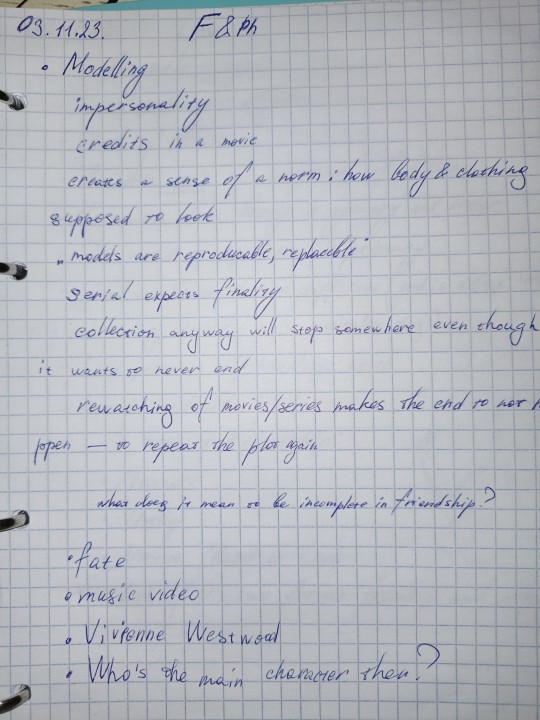 03.11.23. F&Ph
• Modelling
impersonality
credits in a movie
creates a sense of a norm: how body & clothing
supposed to look
„models are reproducable, replaceble"
serial expects finality
collection anyway will stop somewhere even though
it wants to never end
rewatching of movies/series makes the end to not h
ppen — to repeat the plot again
what does it mean to be incomplete in friendship?
• fate
• music video
• Vivienne Westwood
• Who's the main character then?